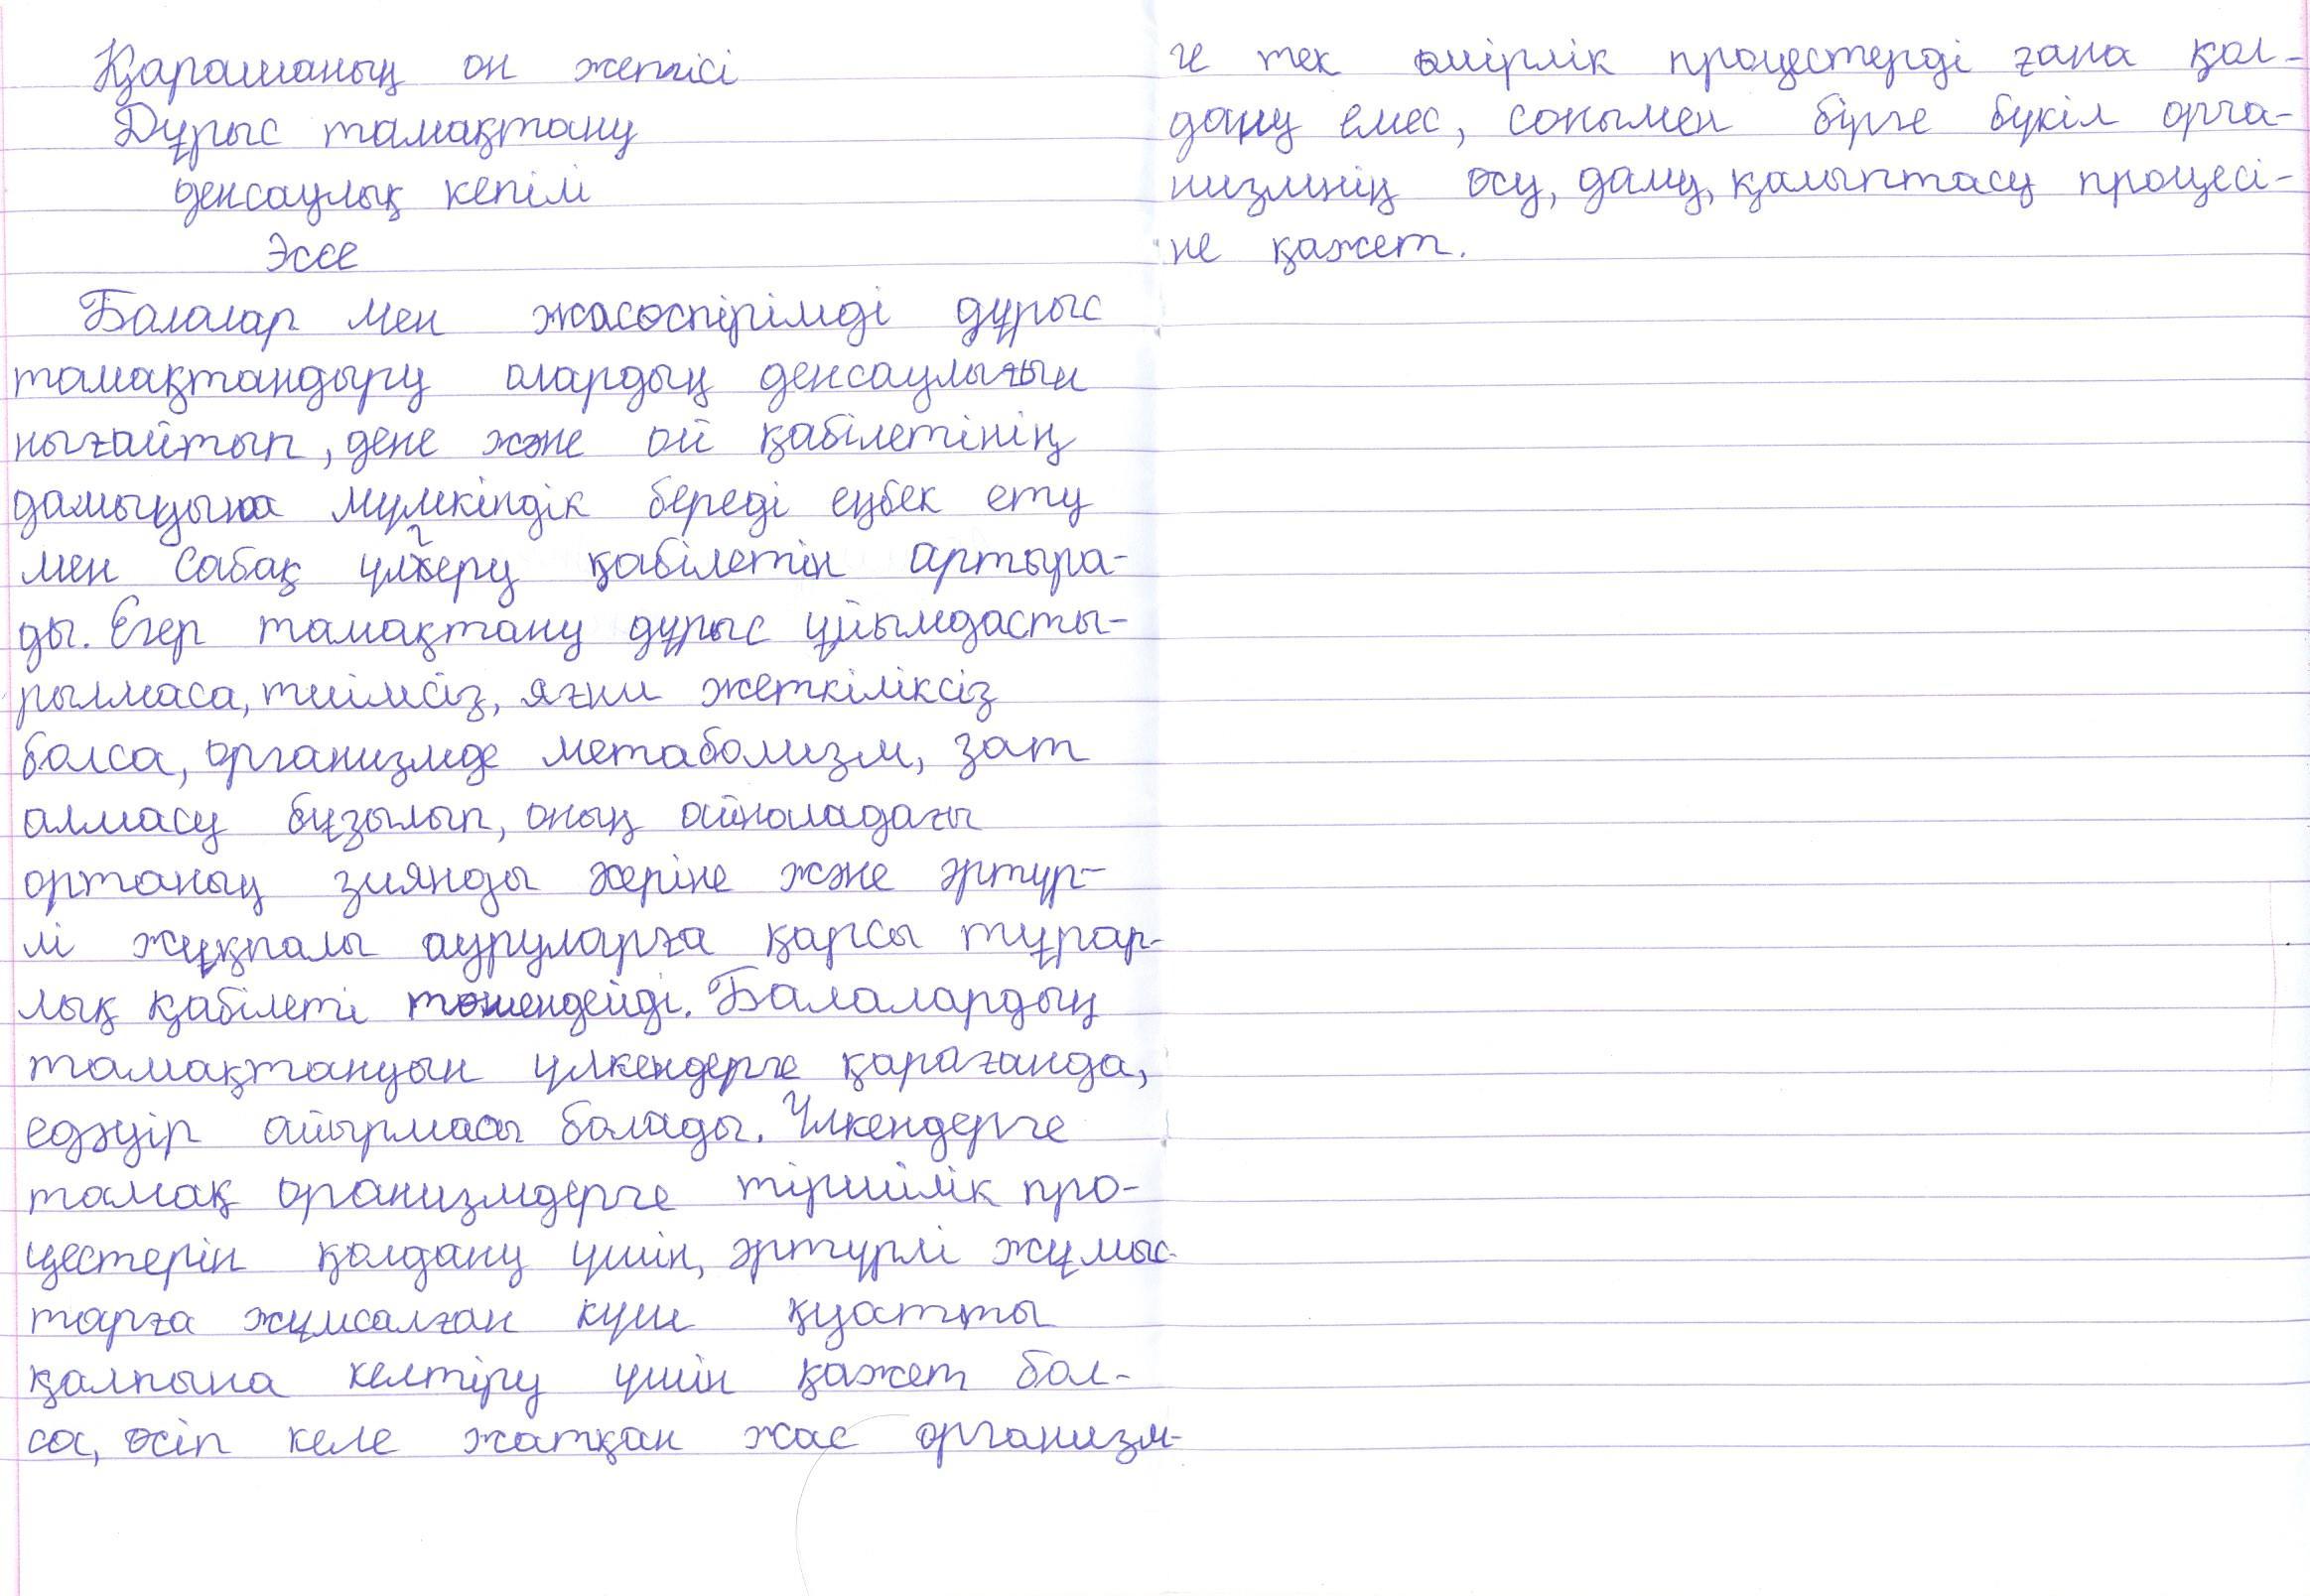 Қарашаның он жетісі
Дұрыс тамақтану
денсаулық кепілі
Эссе
Балалар мен жасөспірімді дұрыс
тамақтандыру олардың денсаулығын
нығайтып, дене және ой қабілетінің
дамыуына мүмкіндік береді еңбек ету
мен сабақ үлгеру қабілетін артыра-
ды. Егер тамақтану дұрыс ұйымдасты-
рылмаса, тиімсіз, яғни жеткіліксіз
болса, организмде метаболизм, зат
алмасу бұзылып, оның айналадағы
ортаның зиянды әсеріне және әртүр-
лі жұқпалы ауруларға қарсы тұрар-
лық қабілеті төмендейді. Балалардың
тамақтануын үлкендерге қарағанда,
едәуір айырмасы болады. Үлкендерге
тамақ организмдерге тіршілік про-
цестерін қолдану үшін, әртүрлі жұмыс-
тарға жұмсалған күш қуатты
қалпына келтіру үшін қажет бол-
са, өсіп келе жатқан жас организм-
ге тек өмірлік процестерді ғана қол-
дану емес, сонымен бірге бүкіл орга-
низмнің өсу, даму, қалыптасу процесі-
не қажет.